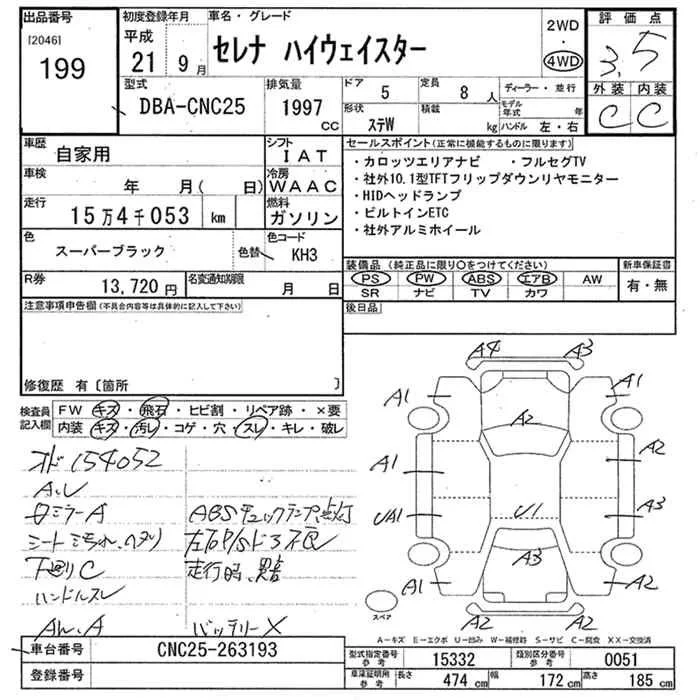 出品番号 初度登録年月 車名・グレード 2WD 評価点
[2046] 199 平成 21 9月 セレナ ハイウェイスター ・ 4WD 3,5
型式 排気量 ドア 5 定員 8人 ディーラー・並行 外装 内装
DBA-CNC25 1997 CC 形状 ステW 積載 kg モデル年式 年 ハンドル 左・右 C C
車歴 自家用 シフト IAT セールスポイント(正常に機能するものに限ります)
車検 年 月( 日) 冷房 WAAC
・カロッツエリアナビ ・フルセグTV
・社外10.1型TFTフリップダウンリヤモニター
・HIDヘッドランプ
・ビルトインETC
・社外アルミホイール
走行 15万4千053 km 燃料 ガソリン
色 スーパーブラック 色替 色コード KH3
装備品(純正品に限り○をつけてください) 新車保証書
PS PW ABS エアB AW 有・無
SR ナビ TV カワ
R券 13,720円 名変通知期限 月 日
後日品
注意事項申告欄(不具合内容等は具体的に記入して下さい)
修復歴 有〔箇所 〕
検査員記入欄 FW キズ・飛石・ヒビ割・リペア跡・×要
内装 キズ・汚レ・コゲ・穴・スレ・キレ・破レ
オド154052
A.U
ロミラーA ABSチェックランプ点灯
シート汚れ、
左右P/Sドア不良
下廻りC 走行時、異音
ハンドルスレ
バッテリーX
A4 A3
A1 A1
A2
A1 A2
UA1 U1 A3
A3
A1 A2
A4 A2
スペア
A-キズ E-エクボ U-凹み W-補修跡 S-サビ C-腐食 XX-交換済
車台番号 CNC25-263193
登録番号
型式指定番号 参考 15332 類別区分番号 参考 0051
車庫証明用 参考 長さ 474 cm 幅 172 cm 高さ 185 cm